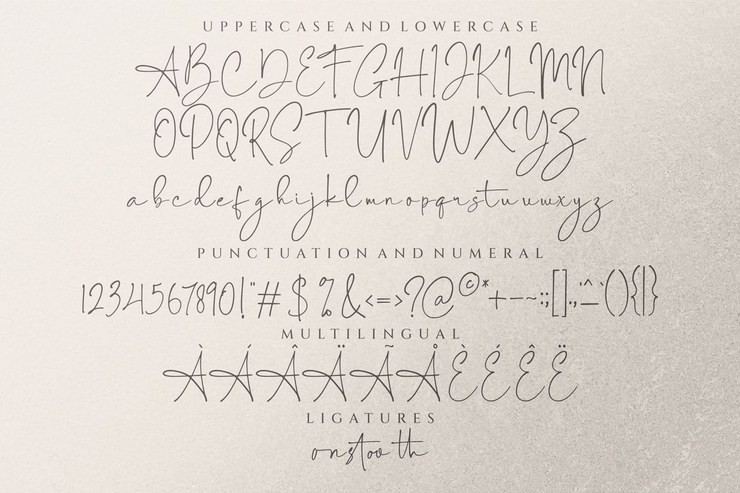 UPPERCASE AND LOWERCASE
ABCDEFGHIJKLMN
OPQRSTUVWXYZ
abcdefghijklmnopqrstuvwxyz
PUNCTUATION AND NUMERAL
1234567890!"#$%&<=>?@©*+-~:;[].,'^_`(){|}
MULTILINGUAL
ÀÁÂÄÃÅÈÉÊË
LIGATURES